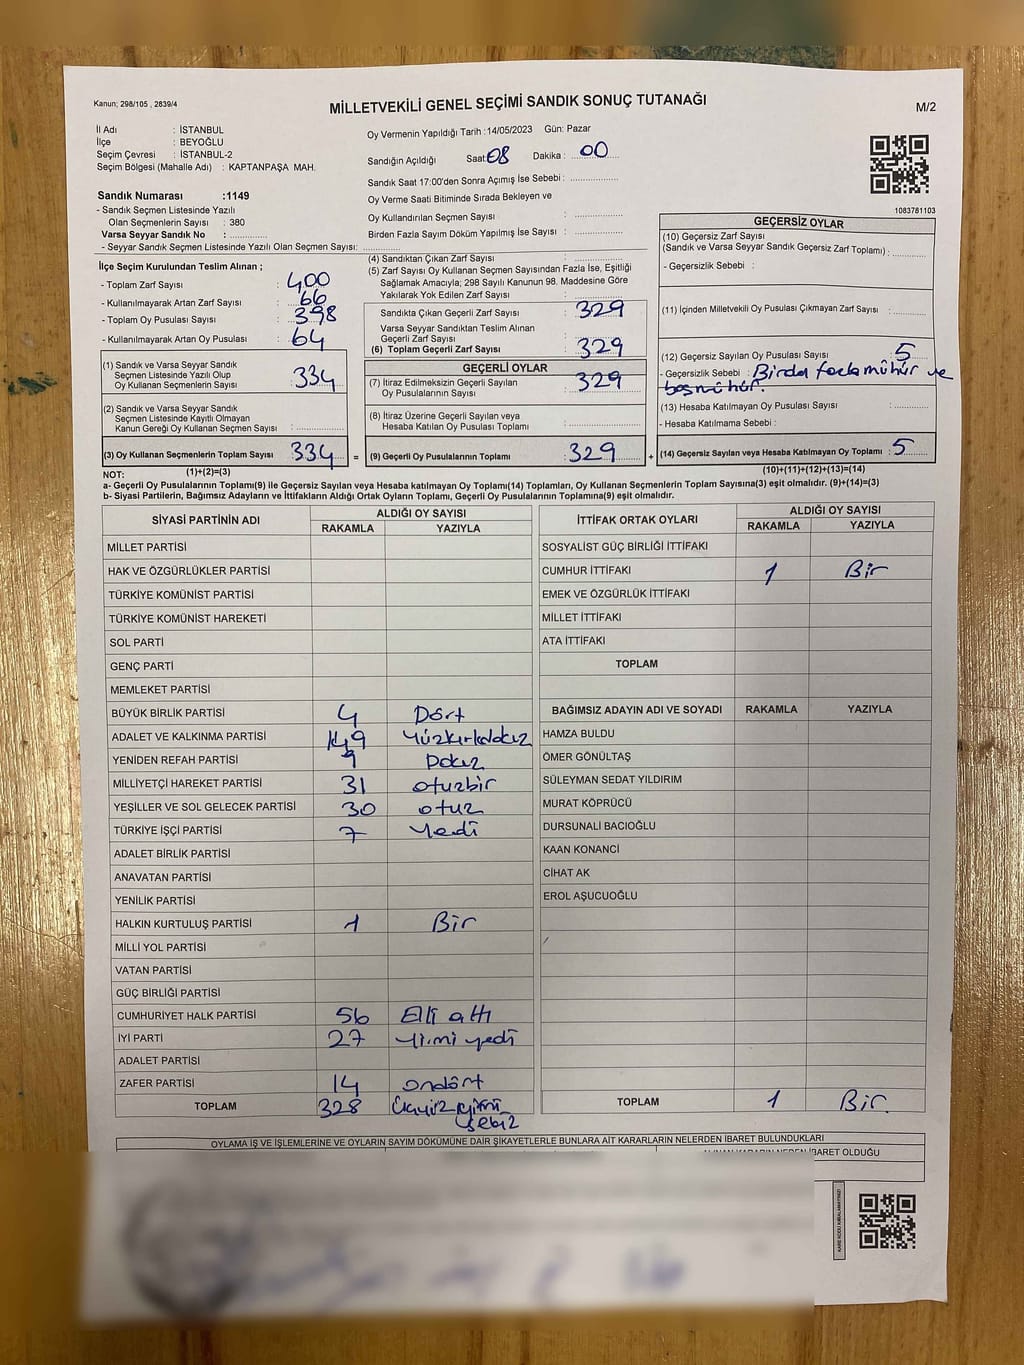 Kanun; 298/105 , 2839/4
MİLLETVEKİLİ GENEL SEÇİMİ SANDIK SONUÇ TUTANAĞI
M/2
İl Adı : İSTANBUL
İlçe : BEYOĞLU
Seçim Çevresi : İSTANBUL-2
Seçim Bölgesi (Mahalle Adı) : KAPTANPAŞA MAH.
Sandık Numarası :1149
- Sandık Seçmen Listesinde Yazılı
Olan Seçmenlerin Sayısı : 380
Varsa Seyyar Sandık No :
- Seyyar Sandık Seçmen Listesinde Yazılı Olan Seçmen Sayısı:
Oy Vermenin Yapıldığı Tarih :14/05/2023 Gün: Pazar
Sandığın Açıldığı Saat:08 Dakika : 00
Sandık Saat 17:00'den Sonra Açımış İse Sebebi :
Oy Verme Saati Bitiminde Sırada Bekleyen ve
Oy Kullandırılan Seçmen Sayısı :
Birden Fazla Sayım Döküm Yapılmış İse Sayısı :
1083781103
İlçe Seçim Kurulundan Teslim Alınan ;
- Toplam Zarf Sayısı : 400
- Kullanılmayarak Artan Zarf Sayısı : 66
- Toplam Oy Pusulası Sayısı : 398
- Kullanılmayarak Artan Oy Pusulası : 64
(1) Sandık ve Varsa Seyyar Sandık
Seçmen Listesinde Yazılı Olup
Oy Kullanan Seçmenlerin Sayısı : 334
(2) Sandık ve Varsa Seyyar Sandık
Seçmen Listesinde Kayıtlı Olmayan
Kanun Gereği Oy Kullanan Seçmen Sayısı :
(3) Oy Kullanan Seçmenlerin Toplam Sayısı 334 =
(4) Sandıktan Çıkan Zarf Sayısı :
(5) Zarf Sayısı Oy Kullanan Seçmen Sayısından Fazla İse, Eşitliği
Sağlamak Amacıyla; 298 Sayılı Kanunun 98. Maddesine Göre
Yakılarak Yok Edilen Zarf Sayısı :
Sandıkta Çıkan Geçerli Zarf Sayısı : 329
Varsa Seyyar Sandıktan Teslim Alınan
Geçerli Zarf Sayısı :
(6) Toplam Geçerli Zarf Sayısı : 329
GEÇERLİ OYLAR
(7) İtiraz Edilmeksizin Geçerli Sayılan
Oy Pusulalarının Sayısı : 329
(8) İtiraz Üzerine Geçerli Sayılan veya
Hesaba Katılan Oy Pusulası Toplamı :
(9) Geçerli Oy Pusulalarının Toplamı : 329 +
GEÇERSİZ OYLAR
(10) Geçersiz Zarf Sayısı
(Sandık ve Varsa Seyyar Sandık Geçersiz Zarf Toplamı) :
- Geçersizlik Sebebi :
(11) İçinden Milletvekili Oy Pusulası Çıkmayan Zarf Sayısı :
(12) Geçersiz Sayılan Oy Pusulası Sayısı : 5
- Geçersizlik Sebebi : Birden fazla mühür ve
boş mühür.
(13) Hesaba Katılmayan Oy Pusulası Sayısı :
- Hesaba Katılmama Sebebi :
(14) Geçersiz Sayılan veya Hesaba Katılmayan Oy Toplamı : 5
NOT: (1)+(2)=(3) (10)+(11)+(12)+(13)=(14)
a- Geçerli Oy Pusulalarının Toplamı(9) ile Geçersiz Sayılan veya Hesaba Katılmayan Oy Toplamı(14) Toplamları, Oy Kullanan Seçmenlerin Toplam Sayısına(3) eşit olmalıdır. (9)+(14)=(3)
b- Siyasi Partilerin, Bağımsız Adayların ve İttifakların Aldığı Ortak Oyların Toplamı, Geçerli Oy Pusulalarının Toplamına(9) eşit olmalıdır.
SİYASİ PARTİNİN ADI ALDIĞI OY SAYISI
RAKAMLA YAZIYLA
MİLLET PARTİSİ
HAK VE ÖZGÜRLÜKLER PARTİSİ
TÜRKİYE KOMÜNİST PARTİSİ
TÜRKİYE KOMÜNİST HAREKETİ
SOL PARTİ
GENÇ PARTİ
MEMLEKET PARTİSİ
BÜYÜK BİRLİK PARTİSİ 4 Dört
ADALET VE KALKINMA PARTİSİ 149 Yüzkırkdokuz
YENİDEN REFAH PARTİSİ 9 Dokuz
MİLLİYETÇİ HAREKET PARTİSİ 31 otuzbir
YEŞİLLER VE SOL GELECEK PARTİSİ 30 otuz
TÜRKİYE İŞÇİ PARTİSİ 7 Yedi
ADALET BİRLİK PARTİSİ
ANAVATAN PARTİSİ
YENİLİK PARTİSİ
HALKIN KURTULUŞ PARTİSİ 1 Bir
MİLLİ YOL PARTİSİ
VATAN PARTİSİ
GÜÇ BİRLİĞİ PARTİSİ
CUMHURİYET HALK PARTİSİ 56 Elli altı
İYİ PARTİ 27 Yirmi yedi
ADALET PARTİSİ
ZAFER PARTİSİ 14 ondört
TOPLAM 328 Üçyüz yirmi
sekiz
İTTİFAK ORTAK OYLARI ALDIĞI OY SAYISI
RAKAMLA YAZIYLA
SOSYALİST GÜÇ BİRLİĞİ İTTİFAKI
CUMHUR İTTİFAKI 1 Bir
EMEK VE ÖZGÜRLÜK İTTİFAKI
MİLLET İTTİFAKI
ATA İTTİFAKI
TOPLAM
BAĞIMSIZ ADAYIN ADI VE SOYADI RAKAMLA YAZIYLA
HAMZA BULDU
ÖMER GÖNÜLTAŞ
SÜLEYMAN SEDAT YILDIRIM
MURAT KÖPRÜCÜ
DURSUNALİ BACIOĞLU
KAAN KONANCİ
CİHAT AK
EROL AŞUCUOĞLU
TOPLAM 1 Bir
OYLAMA İŞ VE İŞLEMLERİNE VE OYLARIN SAYIM DÖKÜMÜNE DAİR ŞİKAYETLERLE BUNLARA AİT KARARLARIN NELERDEN İBARET BULUNDUKLARI
İBARET OLDUĞU